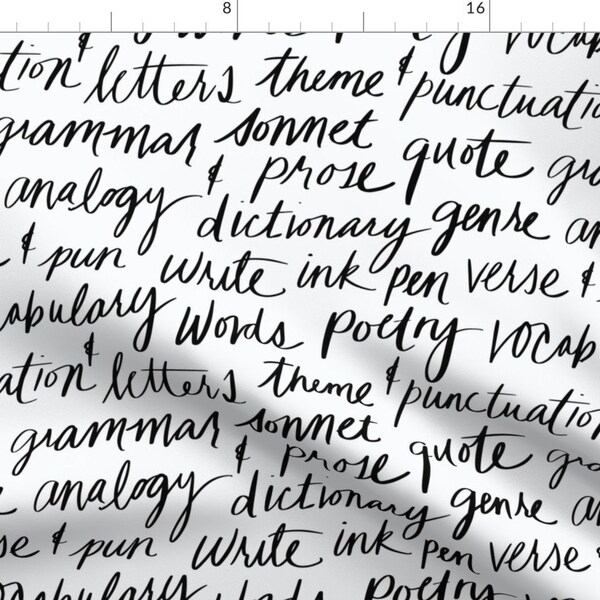 8 16
tion letters theme & punctuatio
grammar sonnet quote gra
analogy & prose
dictionary genre an
& pun write ink pen verse &
abulary words poetry vocab
ation & letters theme & punctuation
grammar sonnet quote gra
analogy & prose
dictionary genre an
se & pun write ink pen verse
vocabulary words poetry